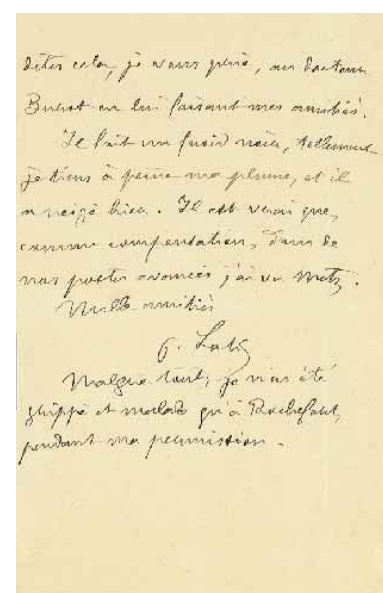 dites cela, je vous prie, au docteur
Burot en lui faisant mes amitiés.
Il fait un froid noir, tellement
je tiens à peine ma plume, et il
a neigé hier. Il est vrai que,
comme compensation, dans de
nos postes avancés j'ai vu Metz.
Mille amitiés
P. Loti
Malgré tout, je n'ai été
grippé et malade qu'à Rochefort,
pendant ma permission.